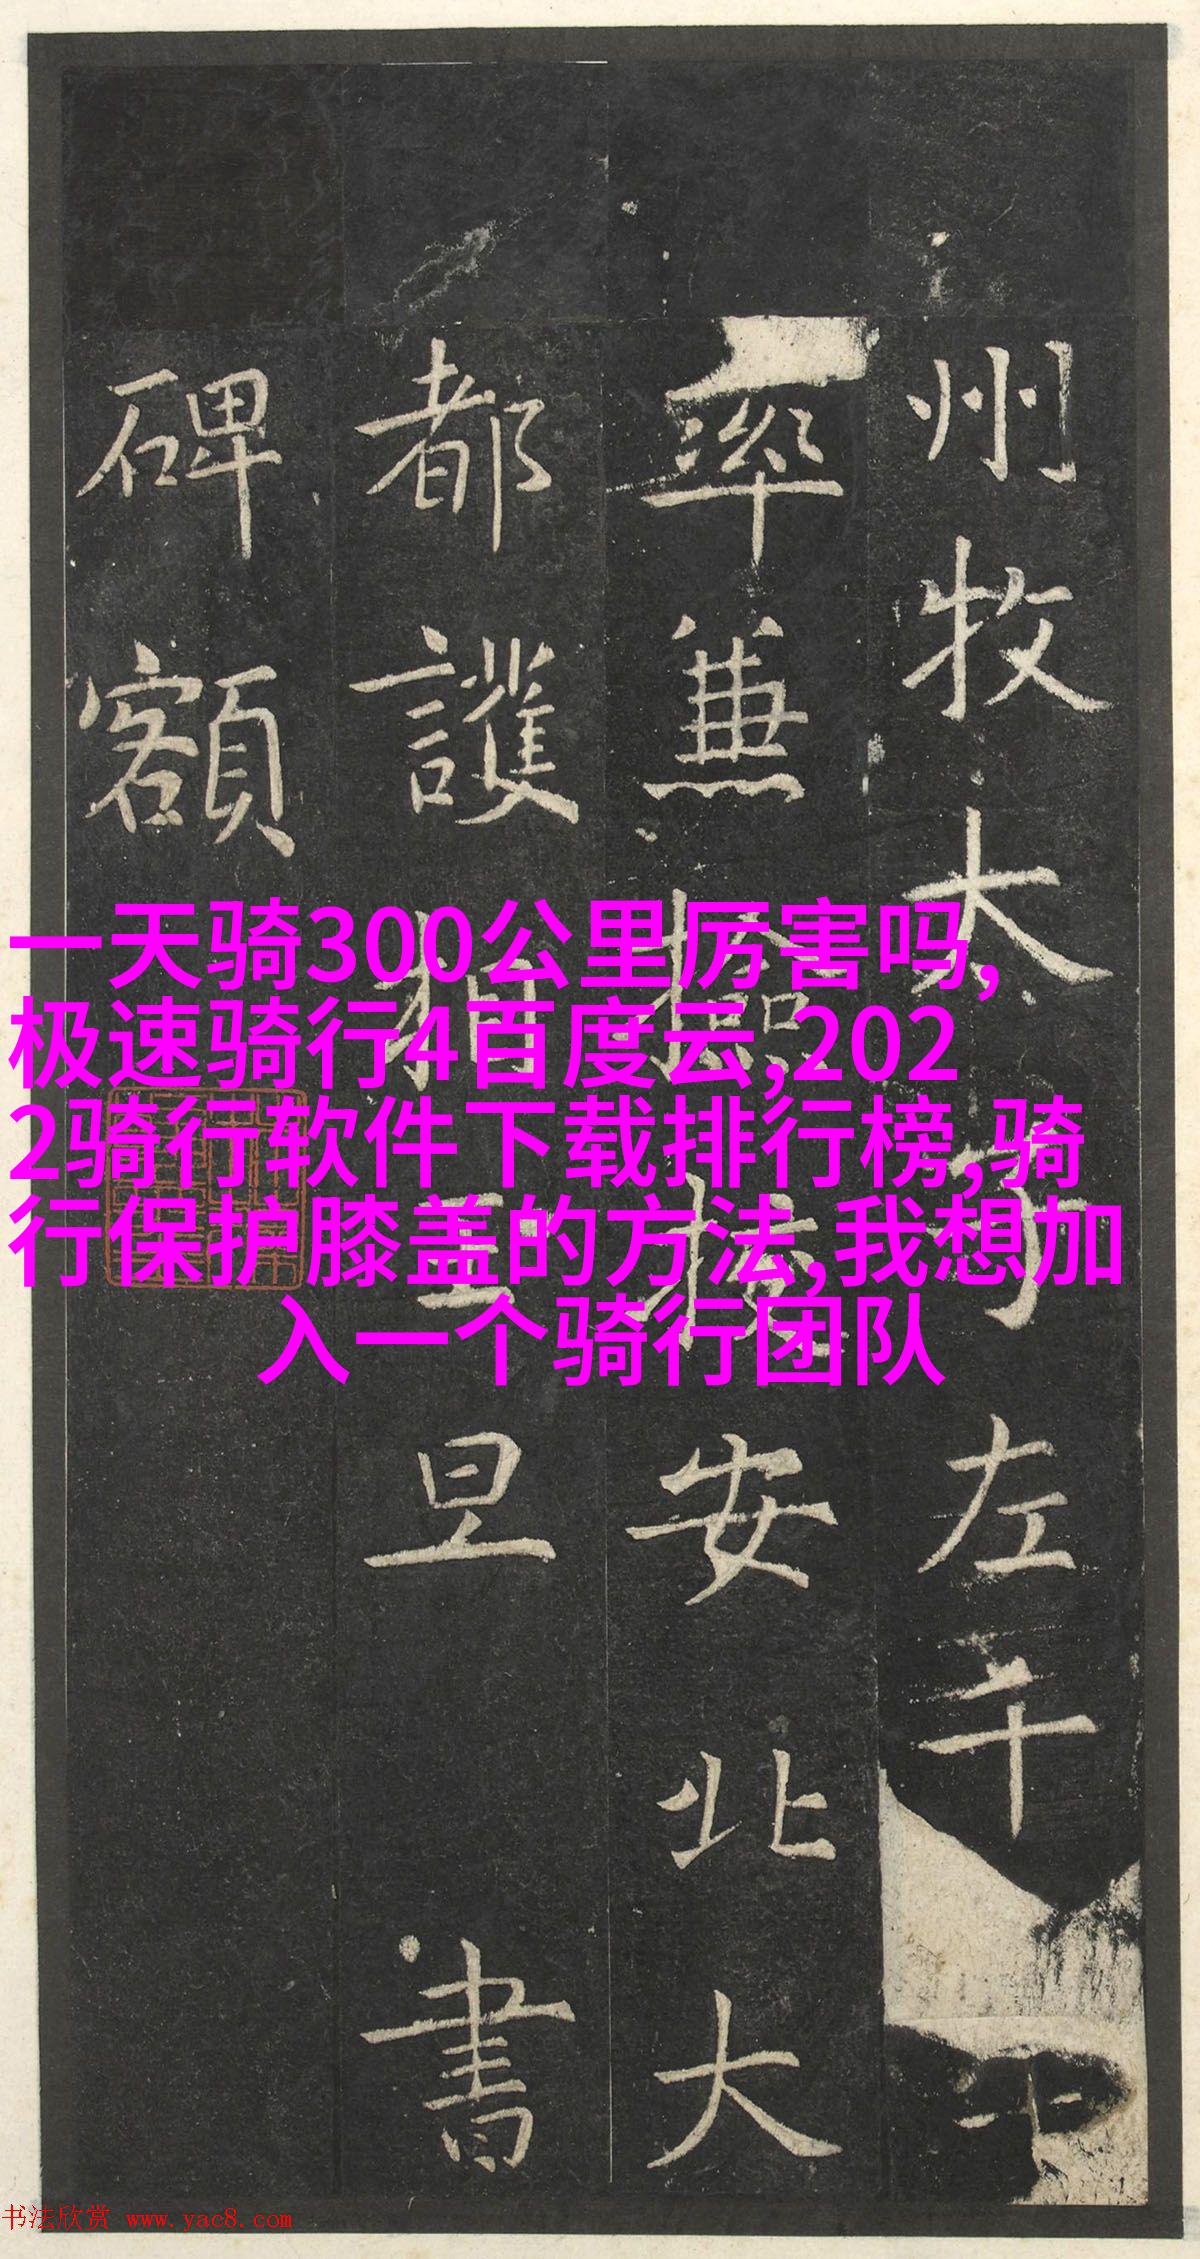 州牧太子左千
率兼檢校安北大
都護相王旦書
碑額
一天骑300公里厉害吗,
极速骑行4百度云,202
2骑行软件下载排行榜,骑
行保护膝盖的方法,我想加
入一个骑行团队
书法欣赏 www.yac8.com